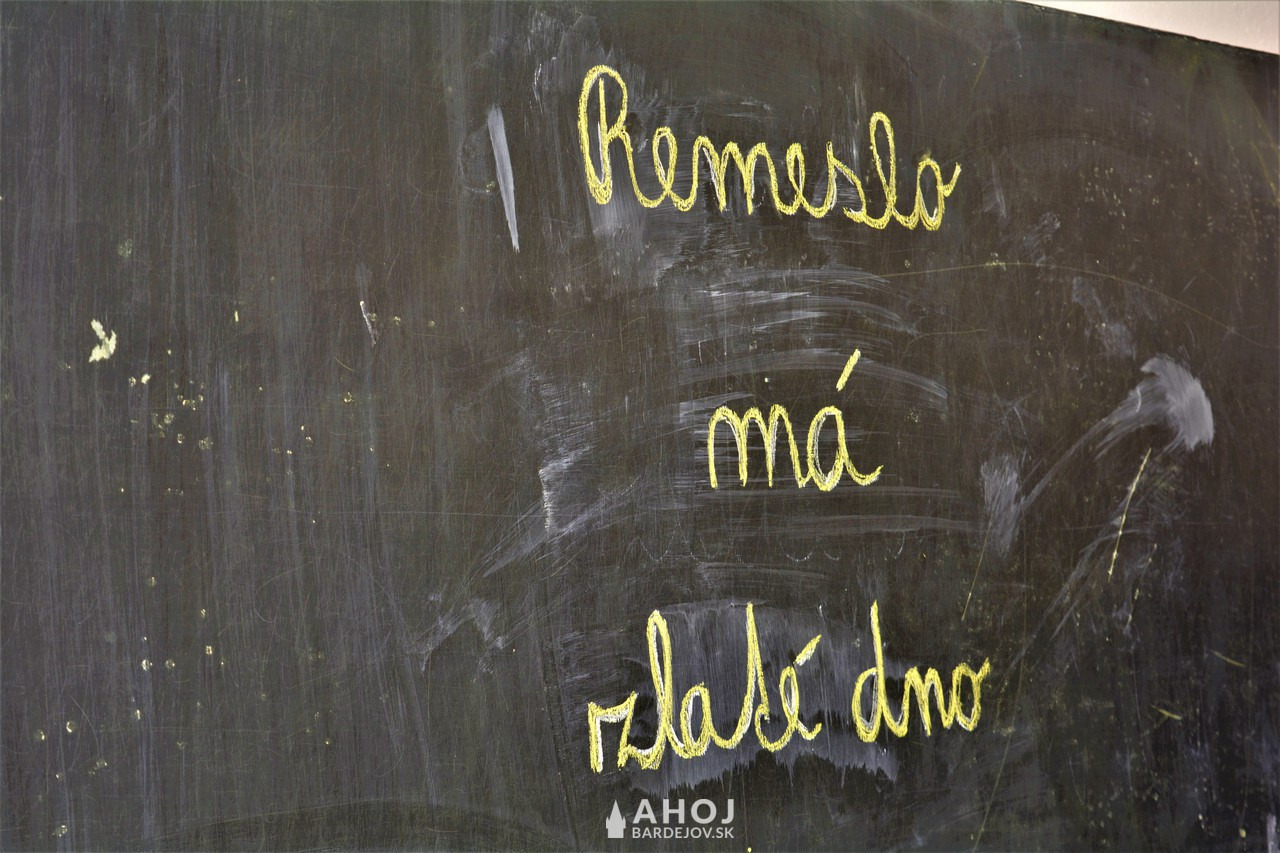 Remeslo
má
zlaté dno
AHOJ
BARDEJOV.SK